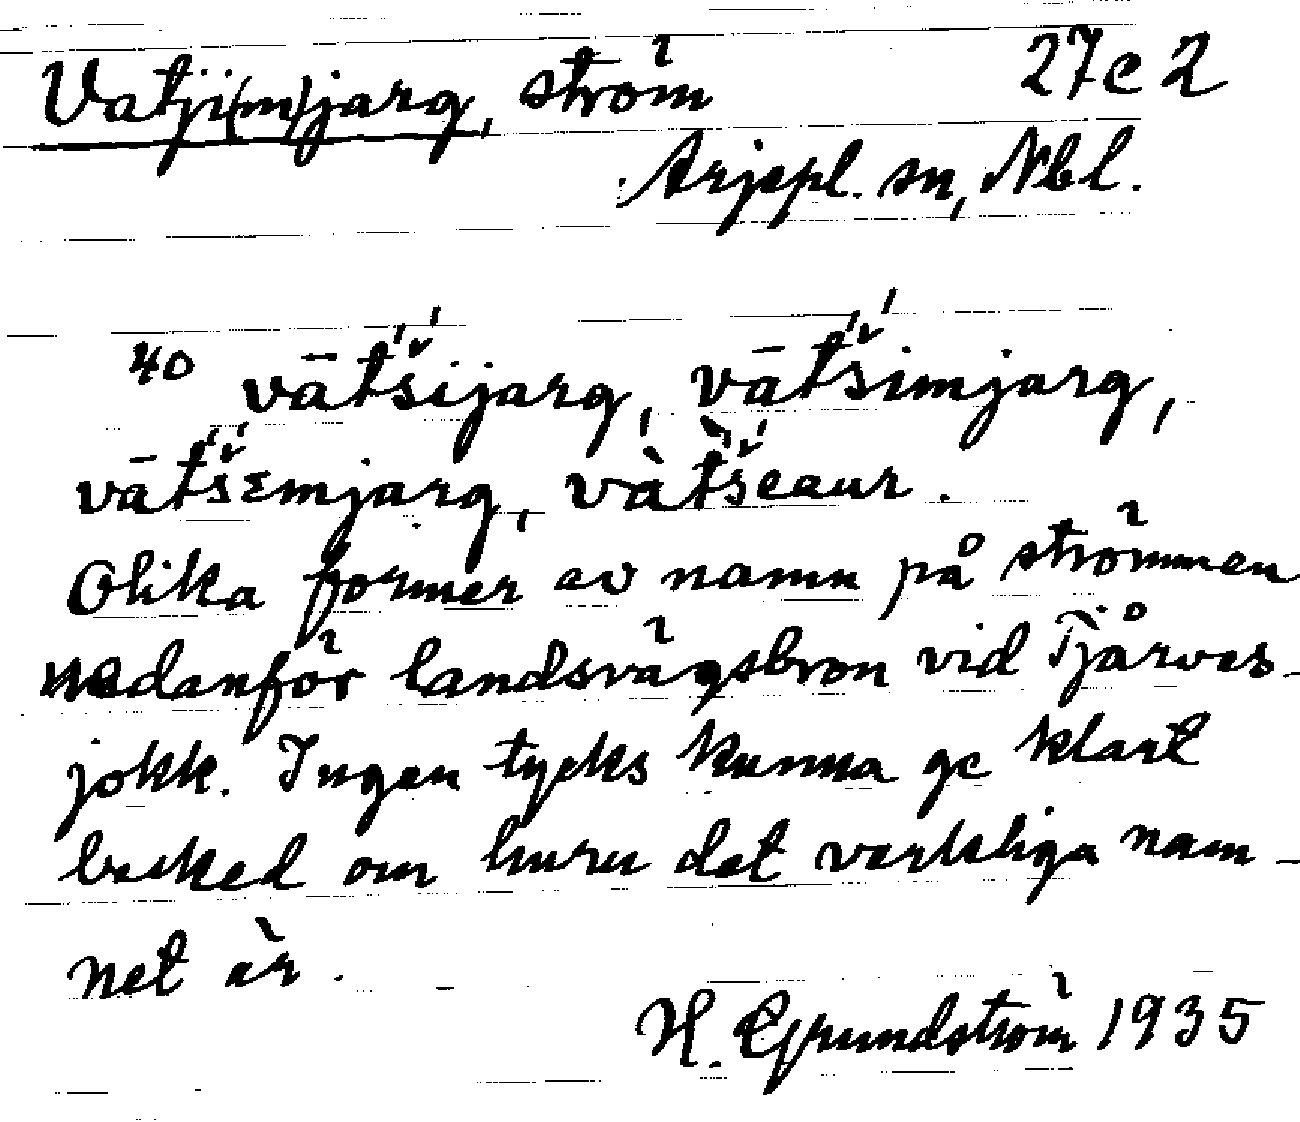 Vatji(m)jarg, ström 27e2
Arjepl. sn, Nbl.
40 vāt́š́ijarg, vāt́š́imjarg,
vāt́š́ɛmjarg, vàt́š́eaur.
Olika former av namn på strömmen
nedanför landsvägsbron vid Tjårves-
jokk. Ingen tycks kunna ge klart
besked om huru det verkliga nam-
net är.
H. Grundström 1935